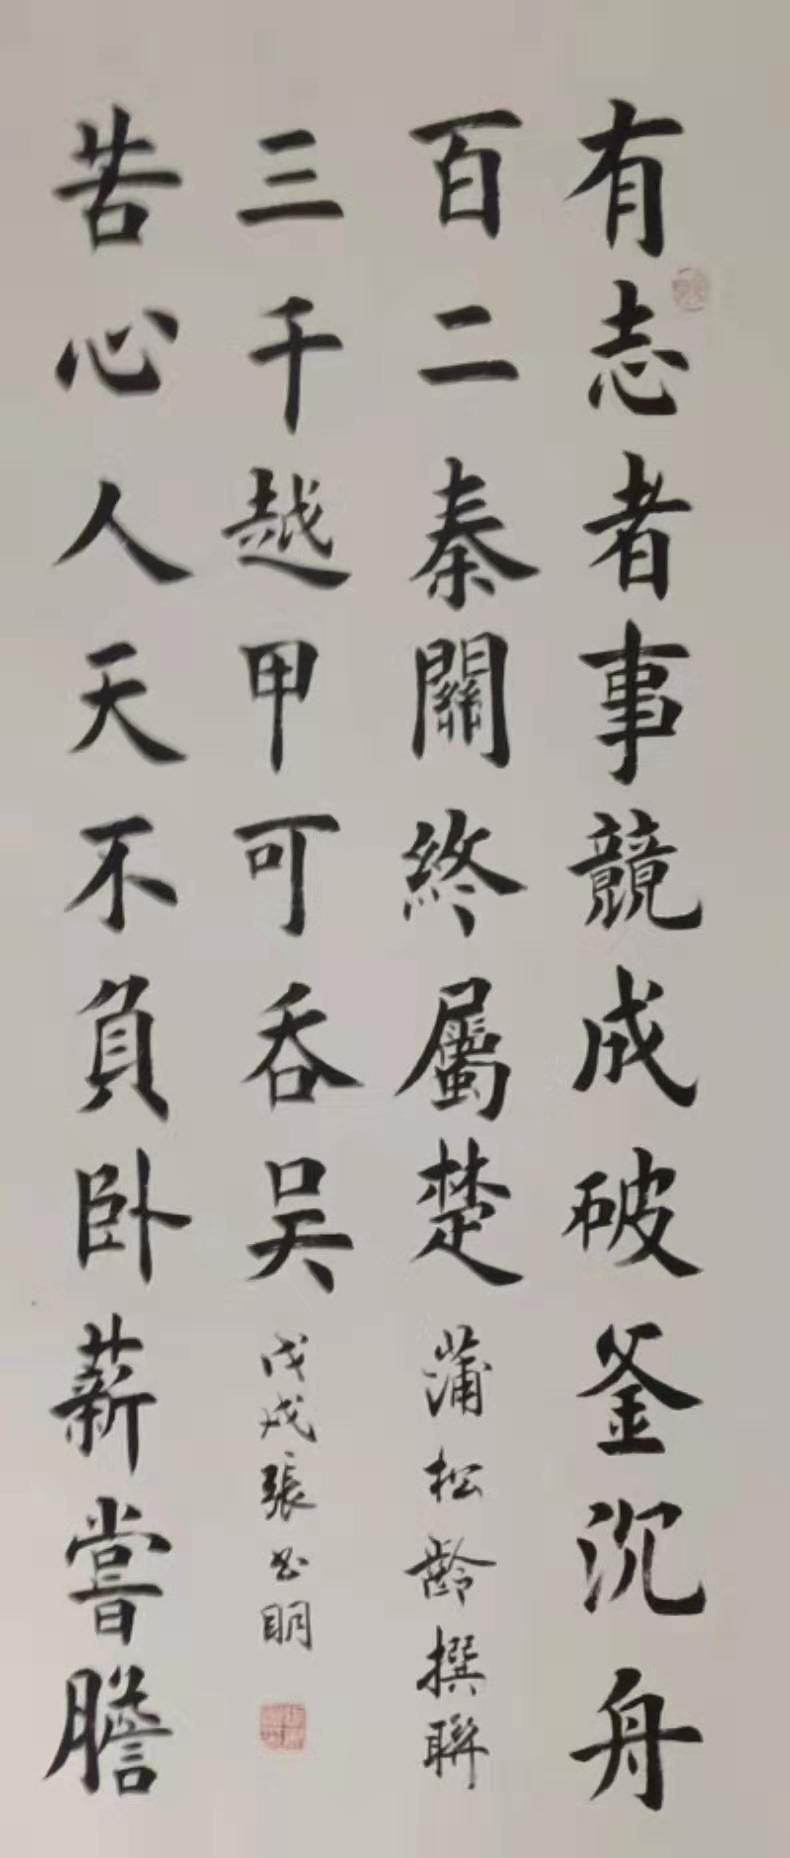 有志者事競成破釜沉舟
百二秦關終屬楚
蒲松齡撰聯
苦心人天不負卧薪嘗膽
三千越甲可吞吴
戊戌張明